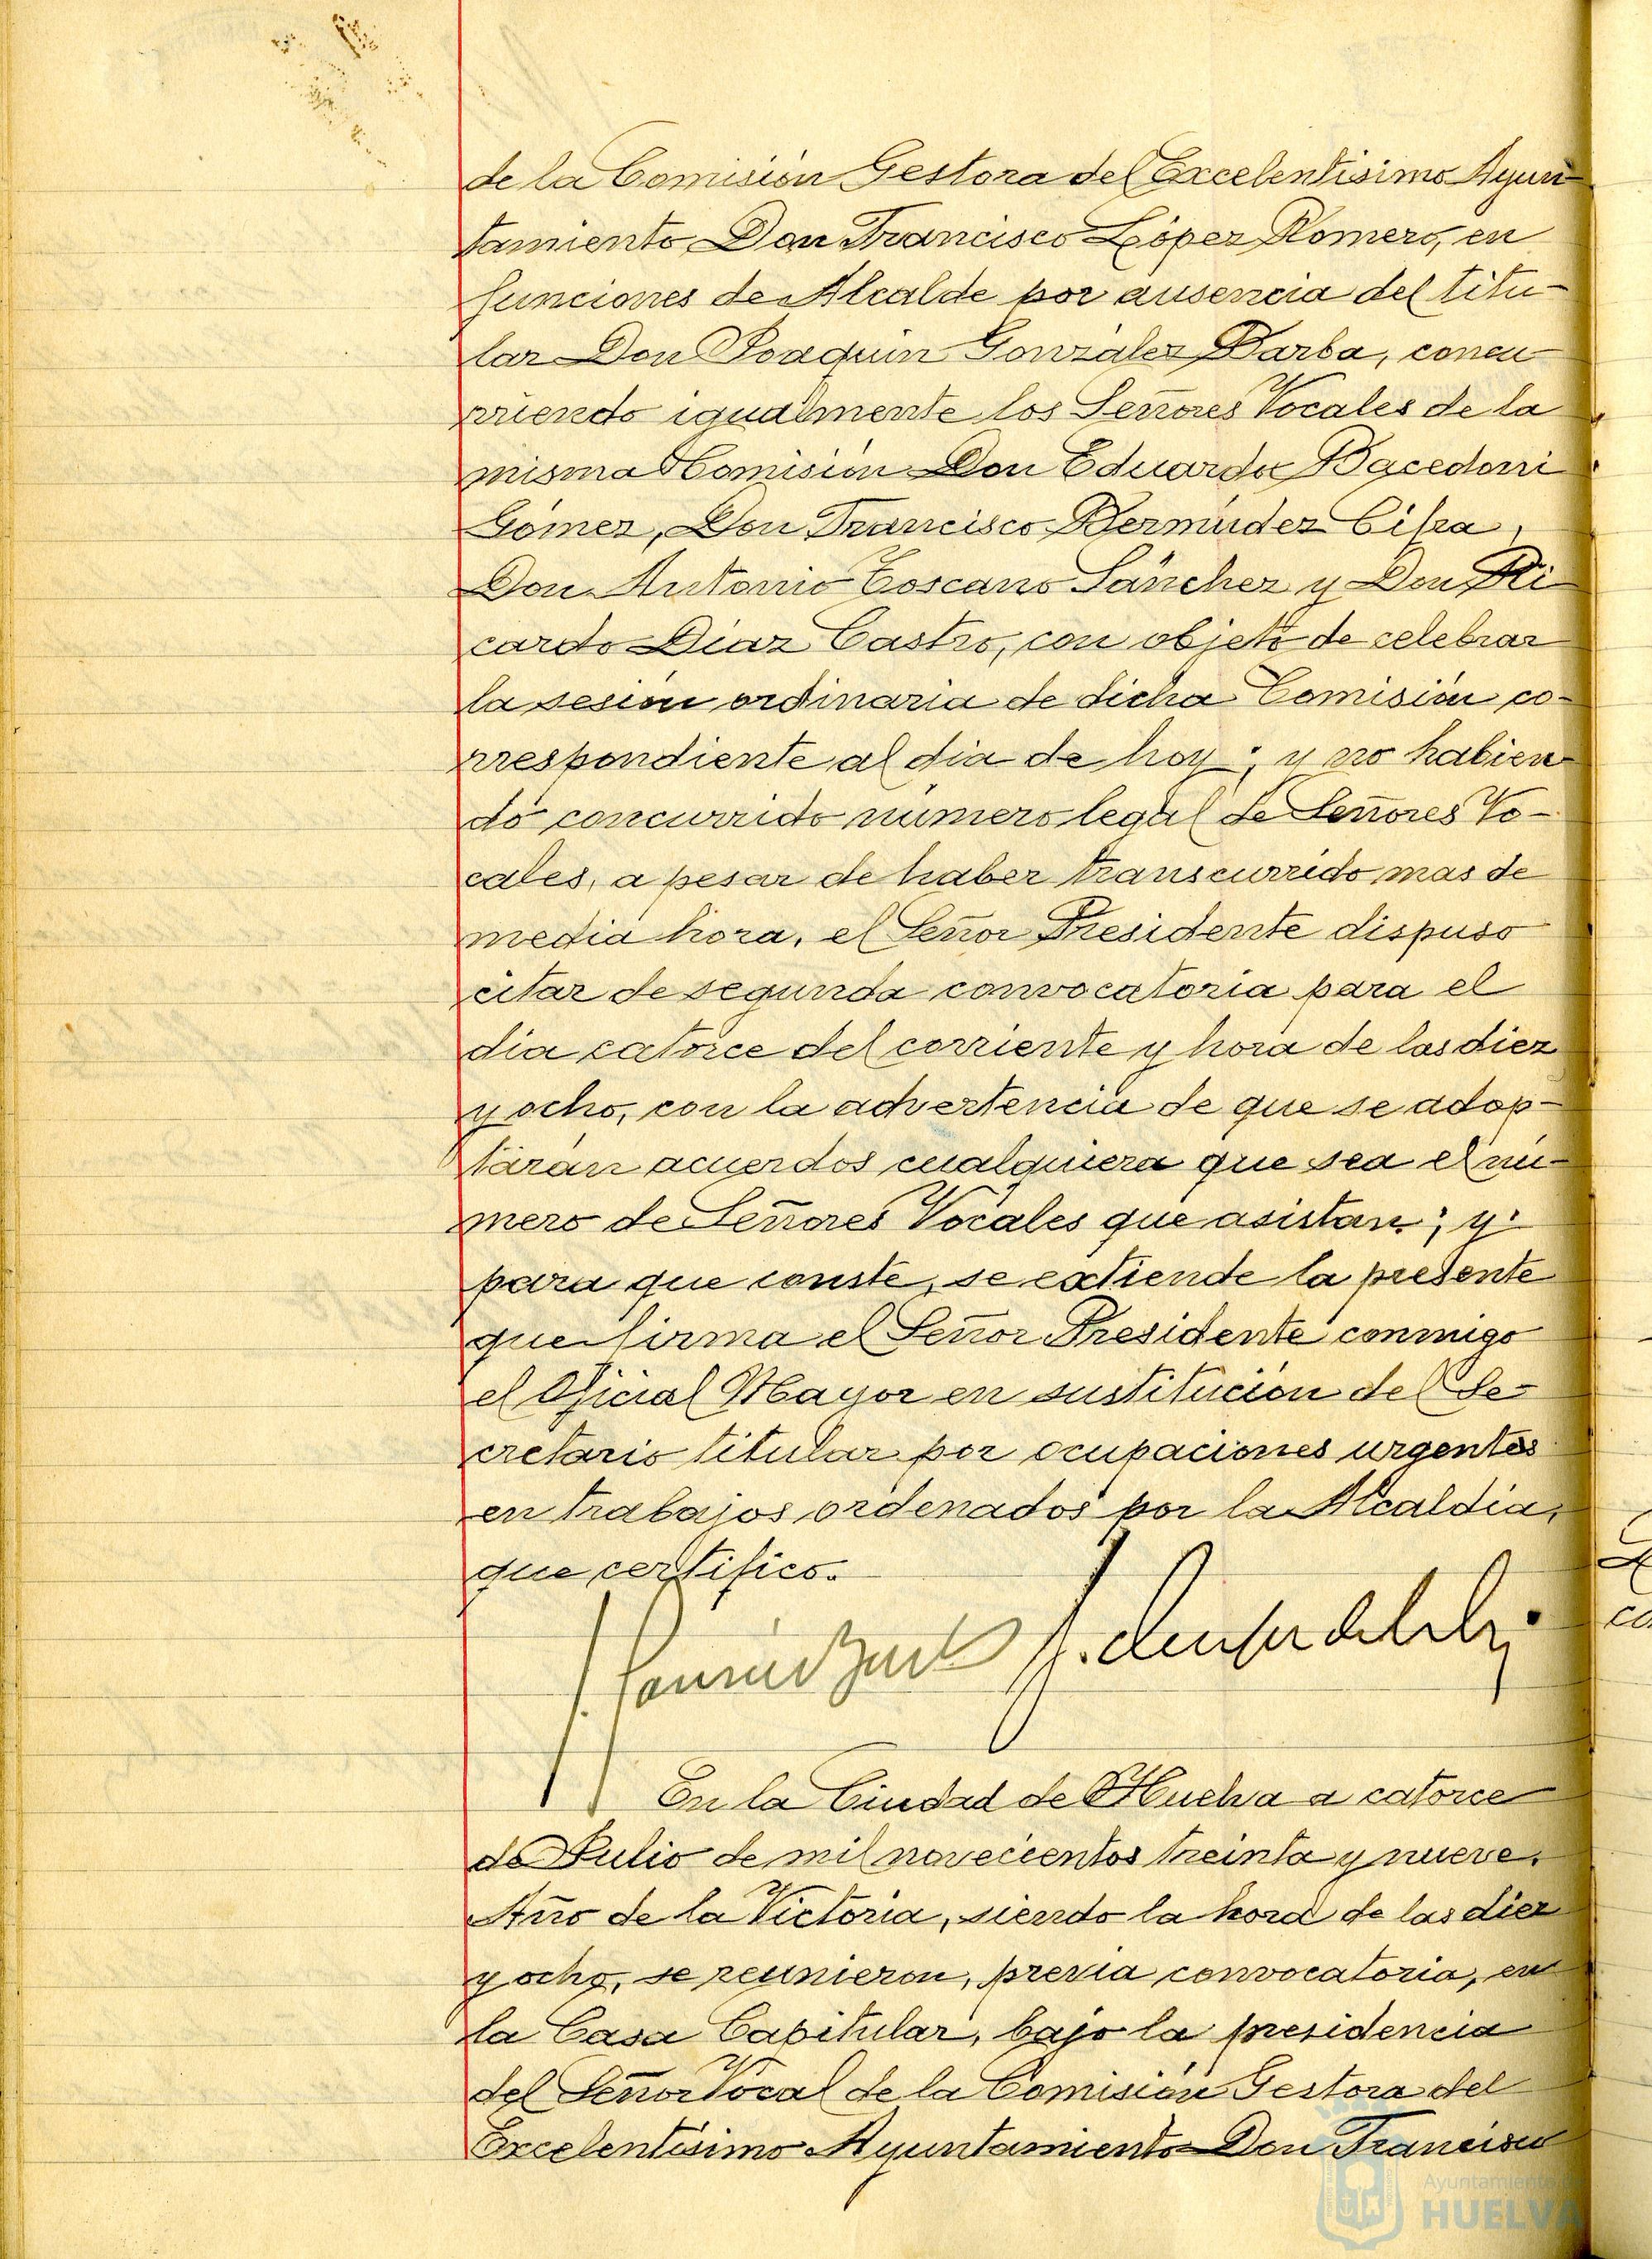 de la Comisión Gestora del Excelentisimo Ayun-
tamiento Don Francisco López Romero, en
funciones de Alcalde por ausencia del titu-
lar Don Joaquin González Barba, concu-
rriendo igualmente los Señores Vocales de la
misma Comisión Don Eduardo Bacedoni
Gómez, Don Francisco Bermúdez Cifra,
Don Antonio Toscano Sánchez y Don Ri-
cardo Diaz Castro, con objeto de celebrar
la sesión ordinaria de dicha Comisión co-
rrespondiente al dia de hoy; y no habien-
do concurrido número legal de Señores Vo-
cales, a pesar de haber transcurrido mas de
media hora, el Señor Presidente dispuso
citar de segunda convocatoria para el
dia catorce del corriente y hora de las diez
y ocho, con la advertencia de que se adop-
tarán acuerdos cualquiera que sea el nú-
mero de Señores Vocales que asistan; y
para que conste, se extiende la presente
que firma el Señor Presidente conmigo
el Oficial Mayor en sustitución del Se-
cretario titular por ocupaciones urgentes
en trabajos ordenados por la Alcaldia,
que certifico.
En la Ciudad de Huelva a catorce
de Julio de mil novecientos treinta y nueve.
Año de la Victoria, siendo la hora de las diez
y ocho, se reunieron, previa convocatoria, en
la Casa Capitular, bajo la presidencia
del Señor Vocal de la Comisión Gestora del
Excelentísimo Ayuntamiento Don Francisco
Ayuntamiento de
HUELVA